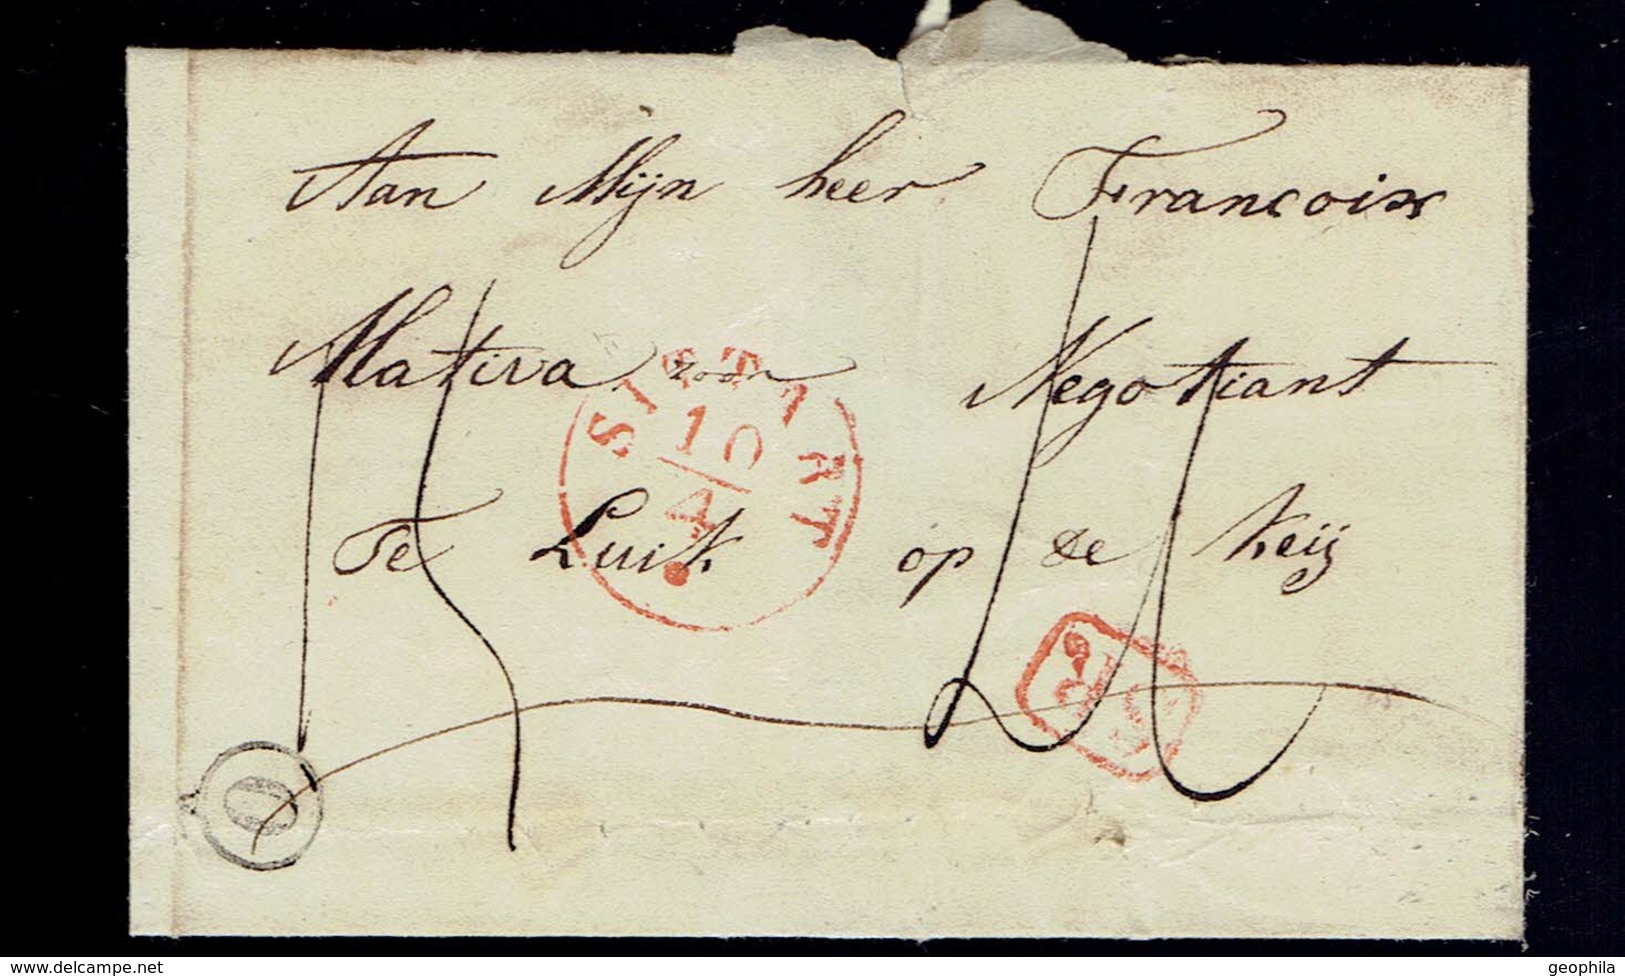 Aan Mijn heer Francois
Mativa zoon Negotiant
Te Luik op de Keij
SITTART
10
4
O
www.delcampe.net
geophila